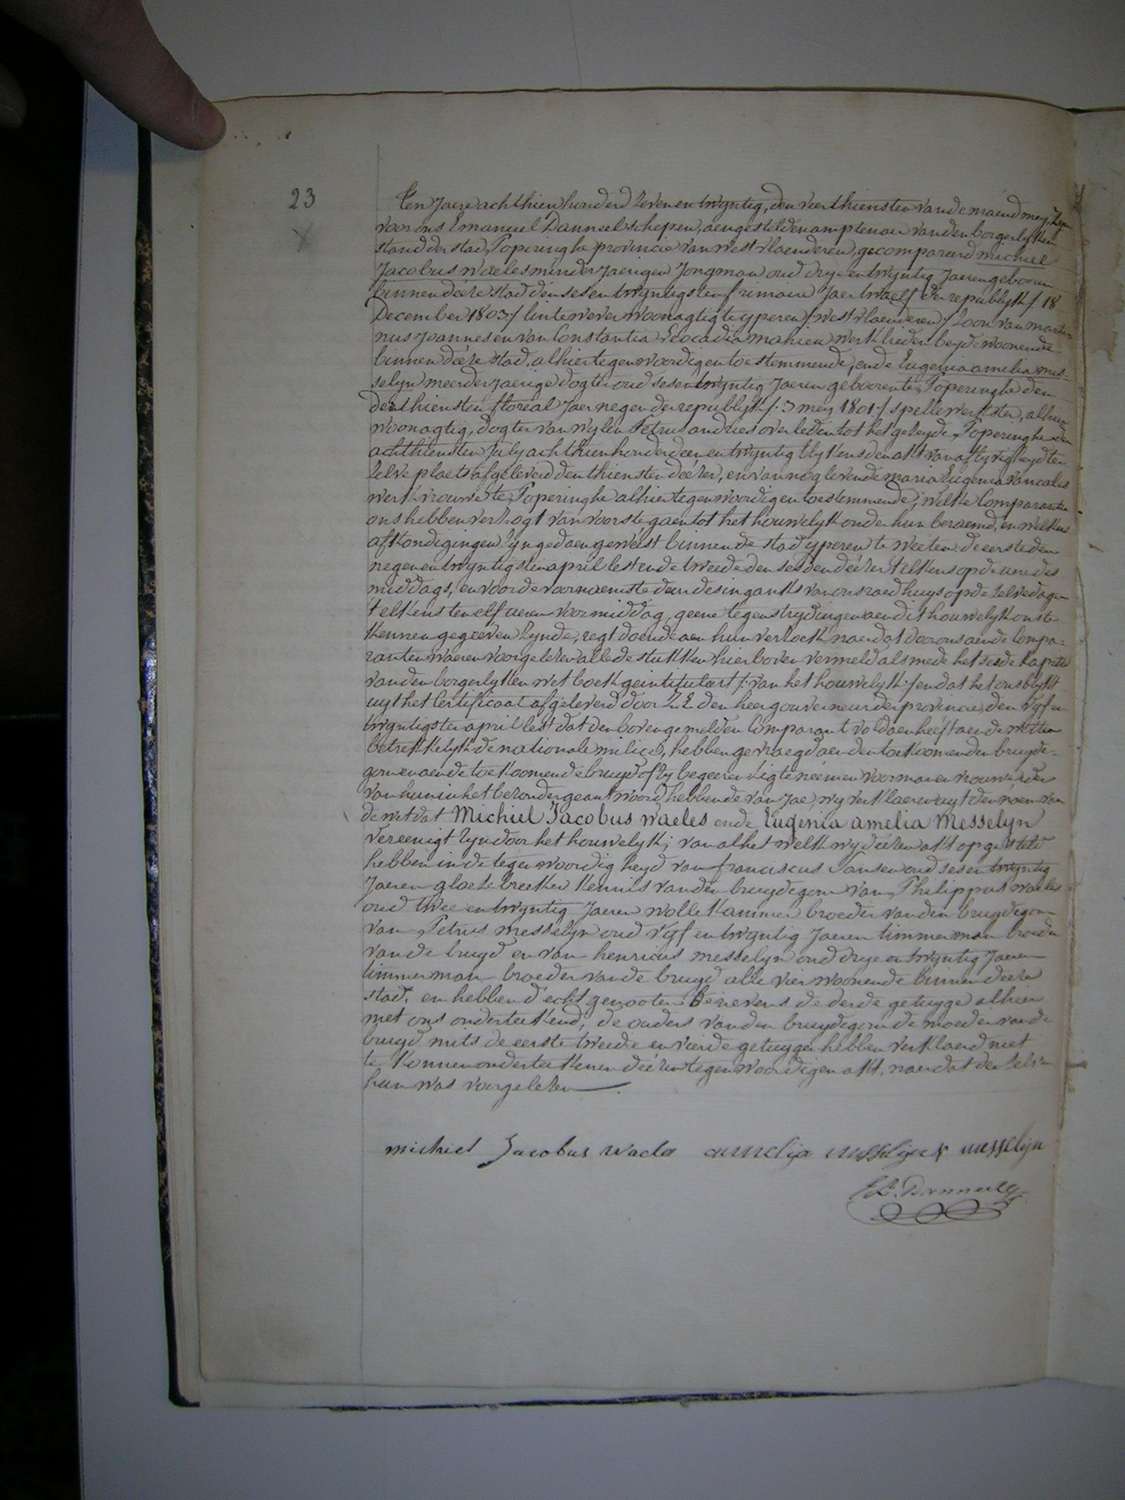 23
Ten Jaere achthien honderd zeven en twyntig, den veerthiensten van de maend mey zyn
voor ons Emanuel Danneel schepen, aengestelden amptenaer van den borgerlyken
stand der stad Poperinghe provincie van West vlaenderen, gecompareerd michiel
Jacobus waeles minderjaerigen Jongman oud drye en twyntig Jaeren gebooren
binnen deéze stad den sesentwyntigsten frimaire Jaer twaelf der republyk /: 18
December 1803 :/ lintewever woonagtig te yperen /: west vlaenderen :/ zoon van marti-
nus Joannes en van Constantia Leocadia mahieu werklieden beyde woonende
binnen deéze stad, alhier tegenwoordig en toestemmende, ende Eugenia amelia mes-
selyn meerderjaerige dogter oud sesentwyntig Jaeren gebooren te Poperinghe den
derthiensten floréal Jaer negen der republyk /: 3 mey 1801 :/ spellewerkster, alhier
woonagtig, dogter van wylen Petrus andries overleden tot het gezeyde Poperinghe den
achthiensten July achthien honderd een en twyntig blykens den akt van aflyvigheyd ten
zelve plaets afgeleverd den thiensten deézer, en van nog levende maria Eugenia
werkvrouw te Poperinghe alhier tegenwoordig en toestemmende; welke Comparanten
ons hebben verzogt van voorts te gaen tot het houwelyk onder hun beraemd, en welkers
afkondigingen zyn gedaen geweest binnen de stad yperen te weeten de eerste den
negen en twyntigsten april lest ende tweede den sesden deézer telkens op de ure des
middags, en voor de voornaemste deure des ingancks van ons raedhuys op de zelve dagen
telkens ten elf ueren voormiddag, geene tegenstrydingen aen dit houwelyk ons te
kennen gegeeven zynde, regt doende aen hun verzoek naer dat door ons aen de Compa-
ranten waeren voorgelezen alle de stukken hier boven vermeld als mede het sesde kapittel
van den borgerlyken wetboek geintituleert /: van het houwelyk :/ en dat het ons blykt
uyt het Certificaet afgeleverd door Z.E. den heer gouverneur der provincie, den vyf en
twyntigsten april lest dat den bovengemelden Comparant voldaen heeft aen de wetten
betrekkelyk de nationale milicie, hebben gevraegd aen den toekomenden bruyde-
gom en aen de toekoomende bruyd of zy begeeren zig te neémen voor man en vrouw, ieder
van hun in het bezonder geantwoord hebbende van Jae, wy verklaeren uyt den naem van
de wet dat Michiel Jacobus waeles ende Eugenia amelia Messelyn
vereenigt zyn door het houwelyk; van al het welk wy deézen akt opgesteld
hebben in de tegenwoordigheyd van franciscus Sansen oud sesen twyntig
Jaeren kennis van den bruydegom van Philippus waeles
oud twee en twyntig Jaeren wollekammer broeder van den bruydegom
van Petrus messelyn oud vyf en twyntig Jaeren timmerman broeder
van de bruyd en van henricus messelyn oud drye en twyntig Jaeren
timmerman broeder van de bruyd alle vier woonende binnen deéze
stad, en hebben d'echtgenooten benevens de derde getuyge alhier
met ons onderteekend, de ouders van den bruydegom de moeder van de
bruyd mits de eerste tweede en vierde getuygen hebben verklaerd niet
te konnen onderteekenen deézen tegenwoordigen akt, naer dat den zelven
hun was voorgelezen
michiel Jacobus waeles amelya messelyn messelyn
Danneel